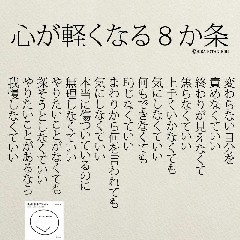 心が軽くなる8か条
変わらない自分を
責めなくていい
終わりが見えなくて
焦らなくていい
上手くいかなくても
気にしなくていい
何もできなくても
恥じなくていい
まわりから何を言われても
気にしなくていい
本当に傷ついているのに
無理しなくていい
やりたいことがなくても
探そうとしなくていい
やりたいことがあるなら
我慢しなくていい